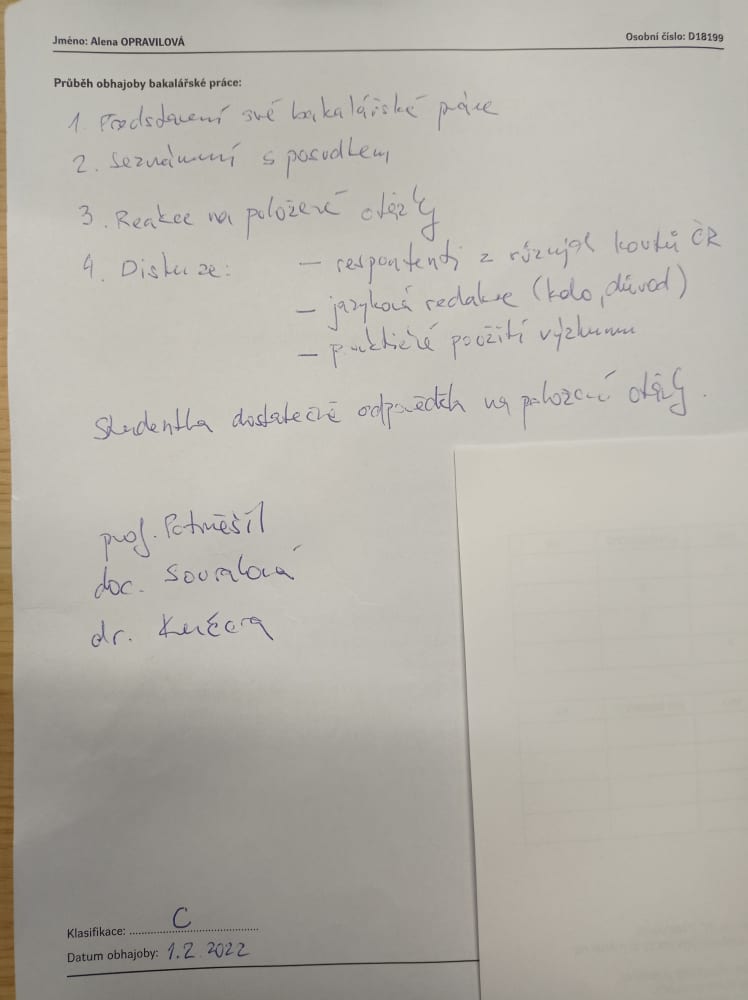 Jméno: Alena OPRAVILOVÁ
Osobní číslo: D18199
Průběh obhajoby bakalářské práce:
1. Představení své bakalářské práce
2. Seznámení s posudkem
3. Reakce na položené otázky
4. Diskuze: – respontenti z různých koutů ČR
– jazyková redakce (kdo, důvod)
– praktické použití výzkumu
Studentka dostatečně odpověděla na položené otázky.
prof. Potměšil
doc. Souralová
dr. Kučera
Klasifikace: C
Datum obhajoby: 1.2.2022